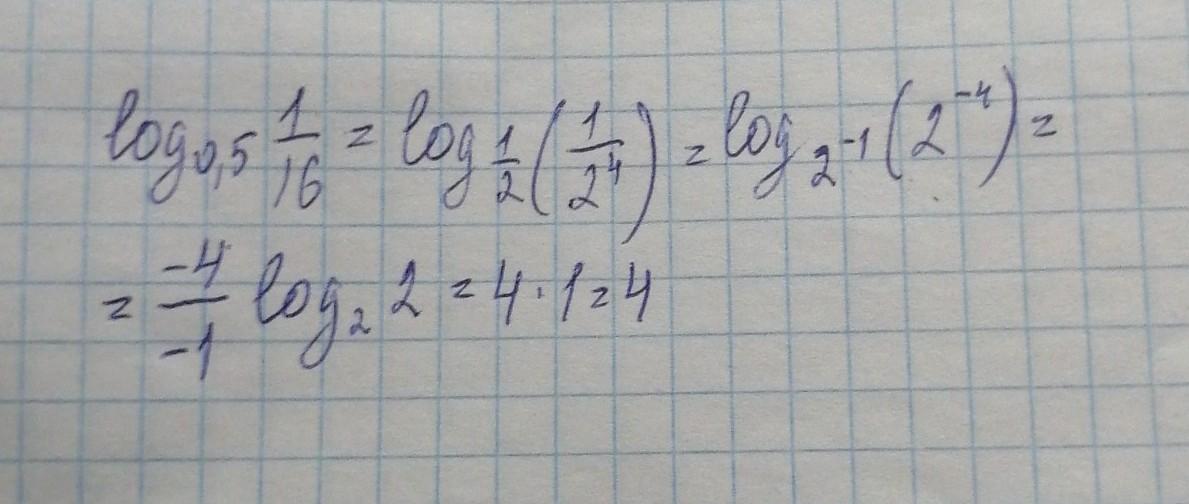 log₀,₅ 1/16 = log_{1/2}(1/2⁴) = log_{2⁻¹}(2⁻⁴) =
= -4/-1 log₂ 2 = 4 · 1 = 4